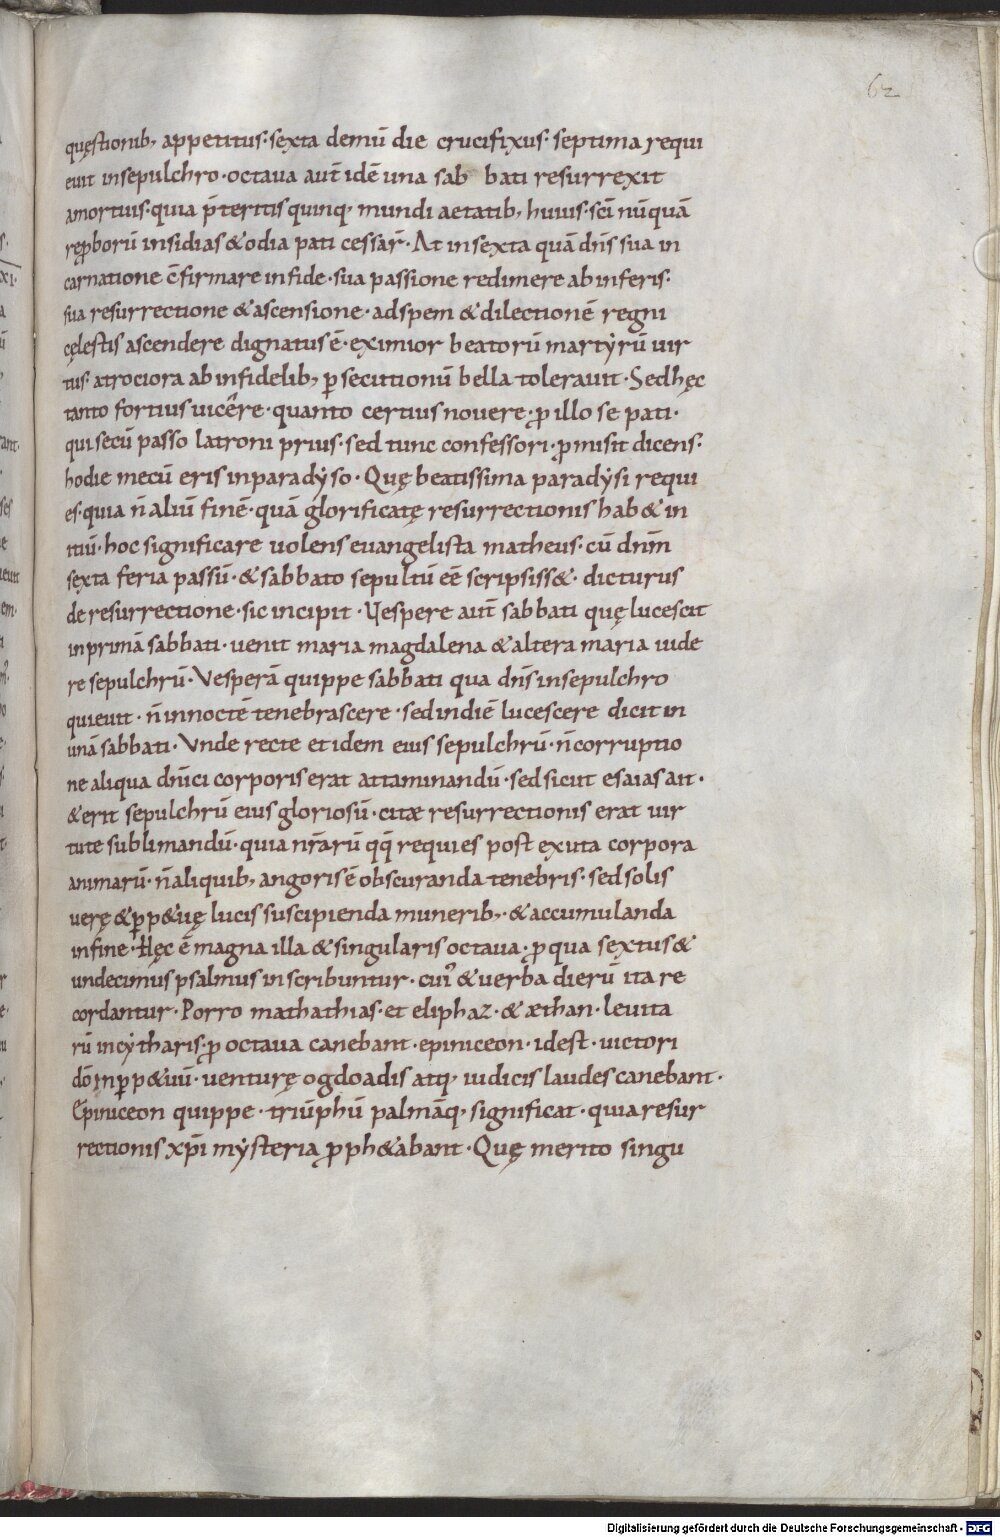 62
quęstionib; appetitus· sexta demū die crucifixus· septima requi
euit insepulchro· octaua aut̄ idē una sab bati resurrexit
amortuis· quia p̄teritis quinq; mundi aetatib; huius· sc̄i nūquā
reꝓborū insidias &odia pati cessar̄· At insexta quā dn̄s sua in
carnatione c̄firmare infide· sua passione redimere abinferis·
sua resurrectione &ascensione· adspem &dilectionē regni
cęlestis ascendere dignatus ē· eximior beatorū martẏrū uir
tus· atrociora abinfidelib; ꝑsecutionū bella tolerauit· Sedhęc
tanto fortius uicēre· quanto certius nouere· ꝓ illo se pati·
qui secū passo latroni prius· sed tunc confessori· ꝓmisit dicens·
hodie mecū eris inparadẏso· Quę beatissima paradẏsi requi
es· quia n̄ aliū finē· quā glorificatę resurrectionis hab& in
itiū· hoc significare uolens euangelista matheus· cū dnm̄
sexta feria passū· &sabbato sepultū eē scripsiss&· dicturus
de resurrectione· sic incipit· Uespere aut̄ sabbati quę lucescit
inprimā sabbati· uenit maria magdalena &altera maria uide
re sepulchrū· Vesperā quippe sabbati qua dn̄s insepulchro
quieuit· n̄ innoctē tenebrascere· sed indiē lucescere dicit in
unā sabbati· Vnde recte et idem eius sepulchrū· n̄ corruptio
ne aliqua dnīci corporis erat attaminandū· sed sicut esaias ait·
&erit sepulchrū eius gloriosū· citæ resurrectionis erat uir
tute sublimandū· quia nr̄arū qq̄ requies post exuta corpora
animarū· n̄ aliquib; angoris ē obscuranda tenebris· sed solis
uerę &ꝑp&uę lucis suscipienda munerib;· &accumulanda
infine· Hęc ē magna illa &singularis octaua· ꝓ qua sextus &
undecimus psalmus inscribuntur· cui᾿ &uerba dierū ita re
cordantur· Porro mathathias· et eliphaz· &æthan· leuita
rū incẏtharis· ꝓ octaua canebant· epiniceon· idest· uictori
dō inꝑp&uū· uenturę ogdoadis atq; iudicis laudes canebant·
Epiniceon quippe· triūphū palmāq; significat· quia resur
rectionis xpī mẏsteria ꝓph&abant· Quę merito singu
Digitalisierung gefördert durch die Deutsche Forschungsgemeinschaft - DFG